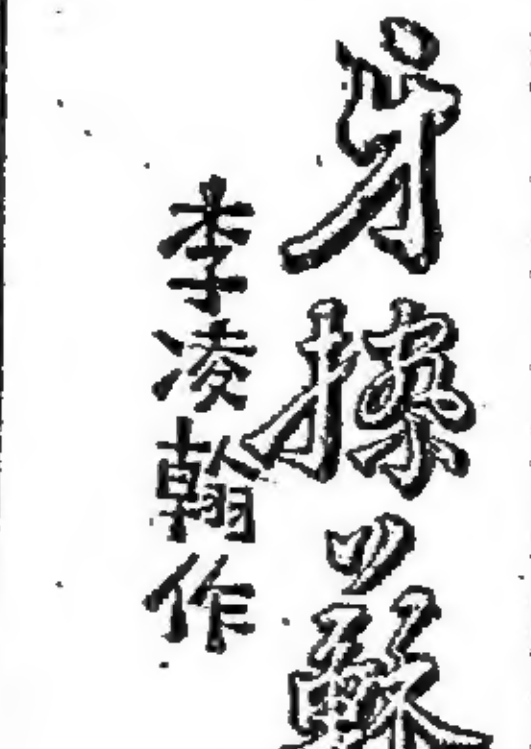 牙擦蘇
李凌翰作